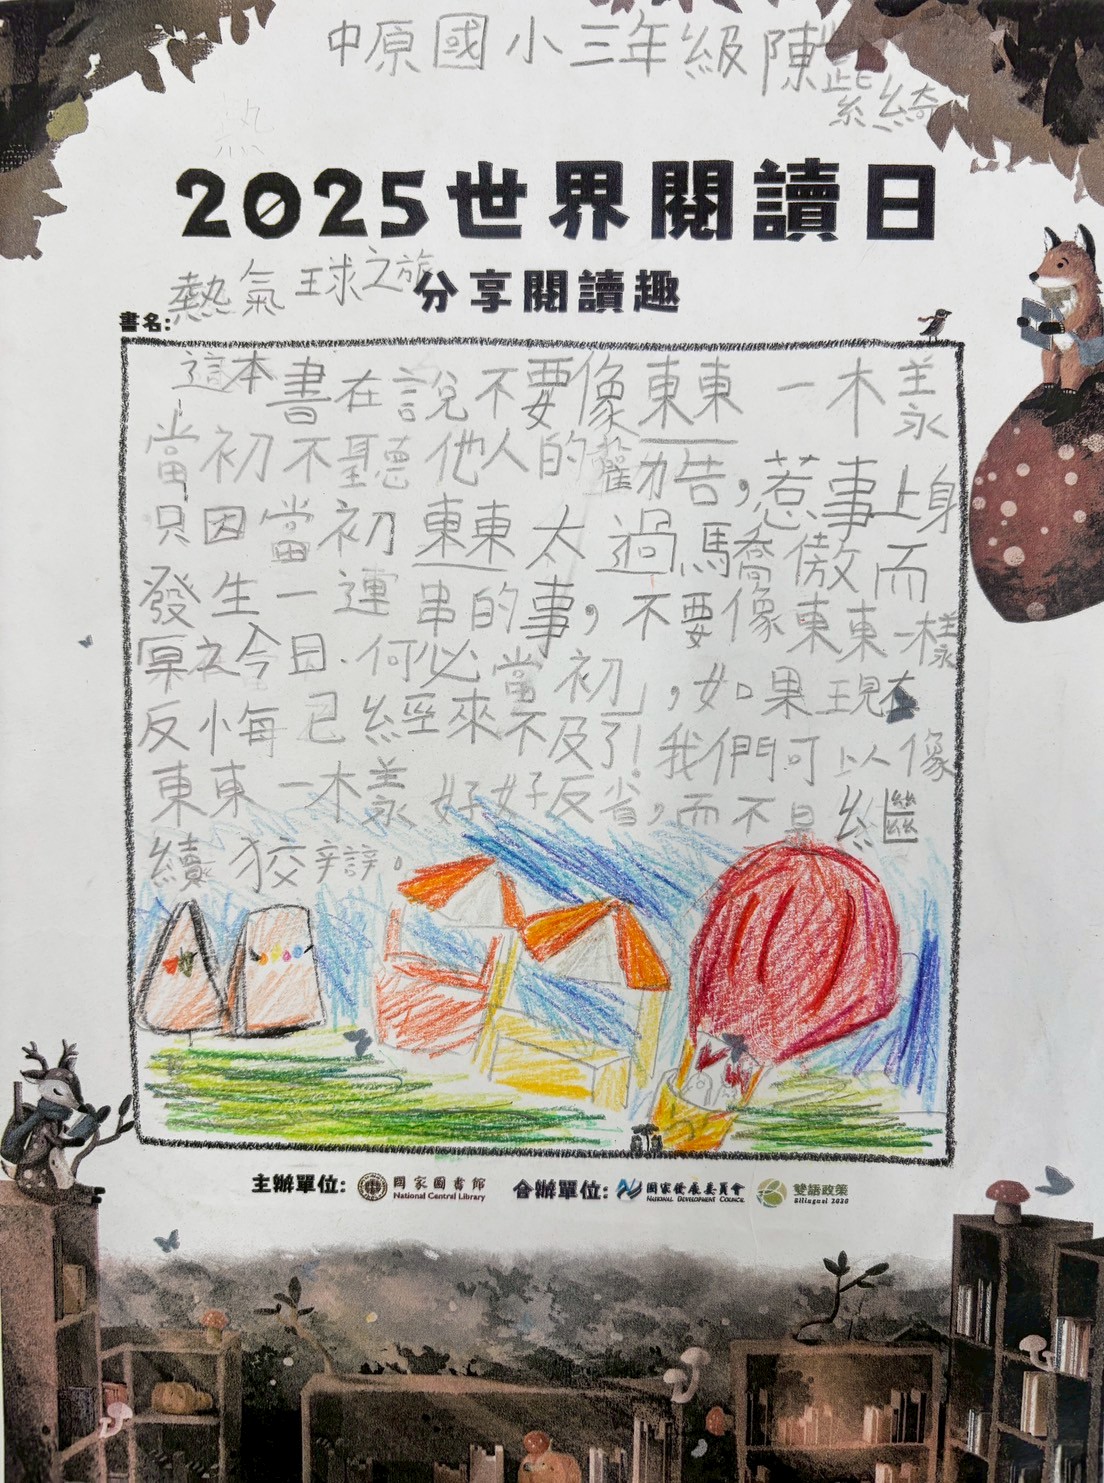 中原國小三年級陳紫綺
熱
2025世界閱讀日
熱氣球之旅
分享閱讀趣
書名:
這本書在說不要像東東一樣
當初不聽他人的勸告,惹事上身
只因當初東東太過驕傲而
發生一連串的事,不要像東東一樣
「早知今日.何必當初」,如果現在
反悔已經來不及了!我們可以像
東東一樣好好反省,而不是繼
續狡辯。
主辦單位: 國家圖書館 National Central Library 合辦單位: 國家發展委員會 NATIONAL DEVELOPMENT COUNCIL 雙語政策 Bilingual 2030